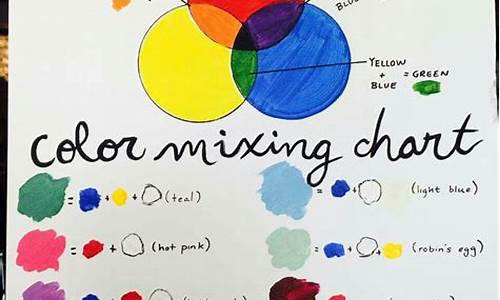 BLUE
YELLOW
+ = GREEN
BLUE
color mixing chart
= + + (teal)
= + (light blue)
= + (hot pink)
= + + (robin's egg)